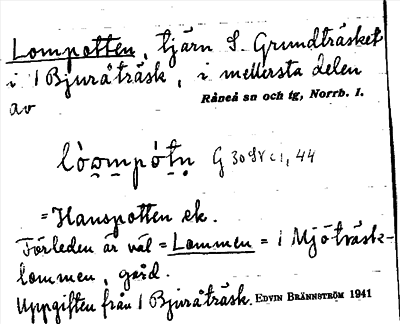 Lompotten, tjärn S. Grundträsket
i 1 Bjuråträsk, i mellersta delen
av
Råneå sn och tg, Norrb. l.
lò̱mpó̱tn̥ G 30
= Hanspotten ek.
Förleden är väl = Lommen = i Mjöträsk-
lommen, gård.
Uppgiften från 1 Bjuråträsk. EDVIN BRÄNNSTRÖM 1941